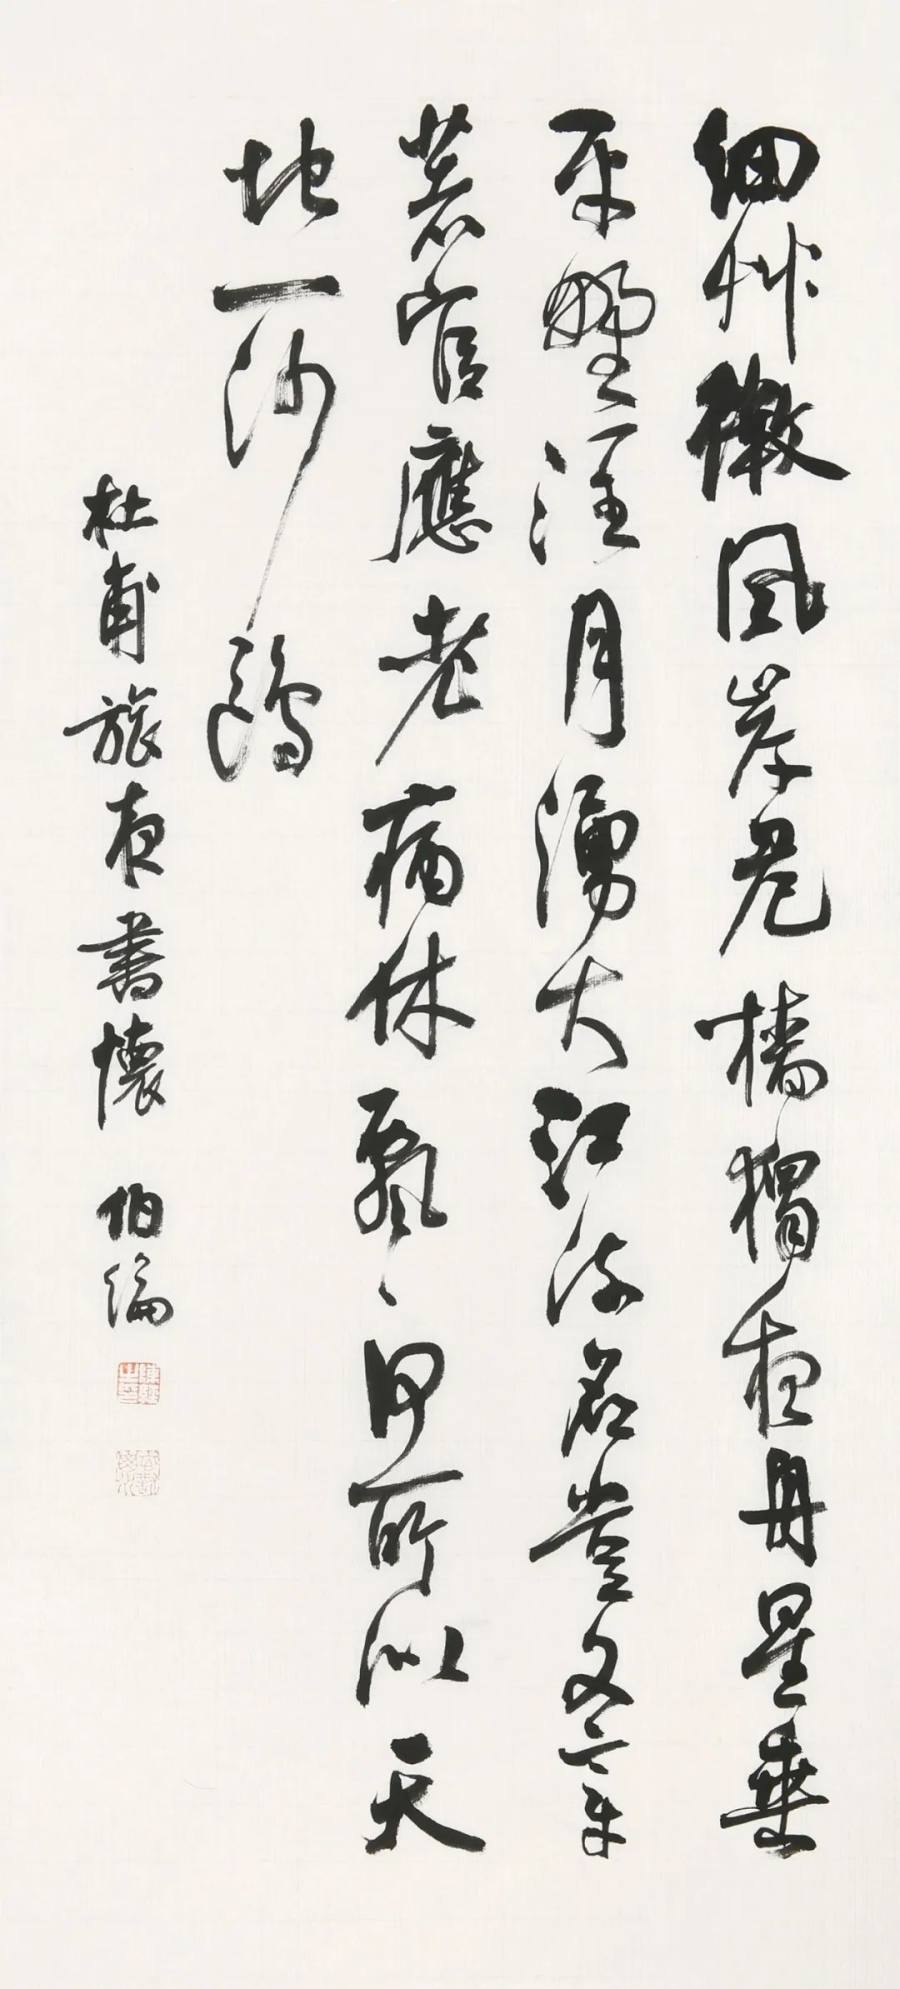 細艸微風岸危檣獨夜舟星垂
平野闊月湧大江流名豈文章
著官應老病休飄〻何所似天
地一沙鷗
杜甫旅夜書懷 伯綸